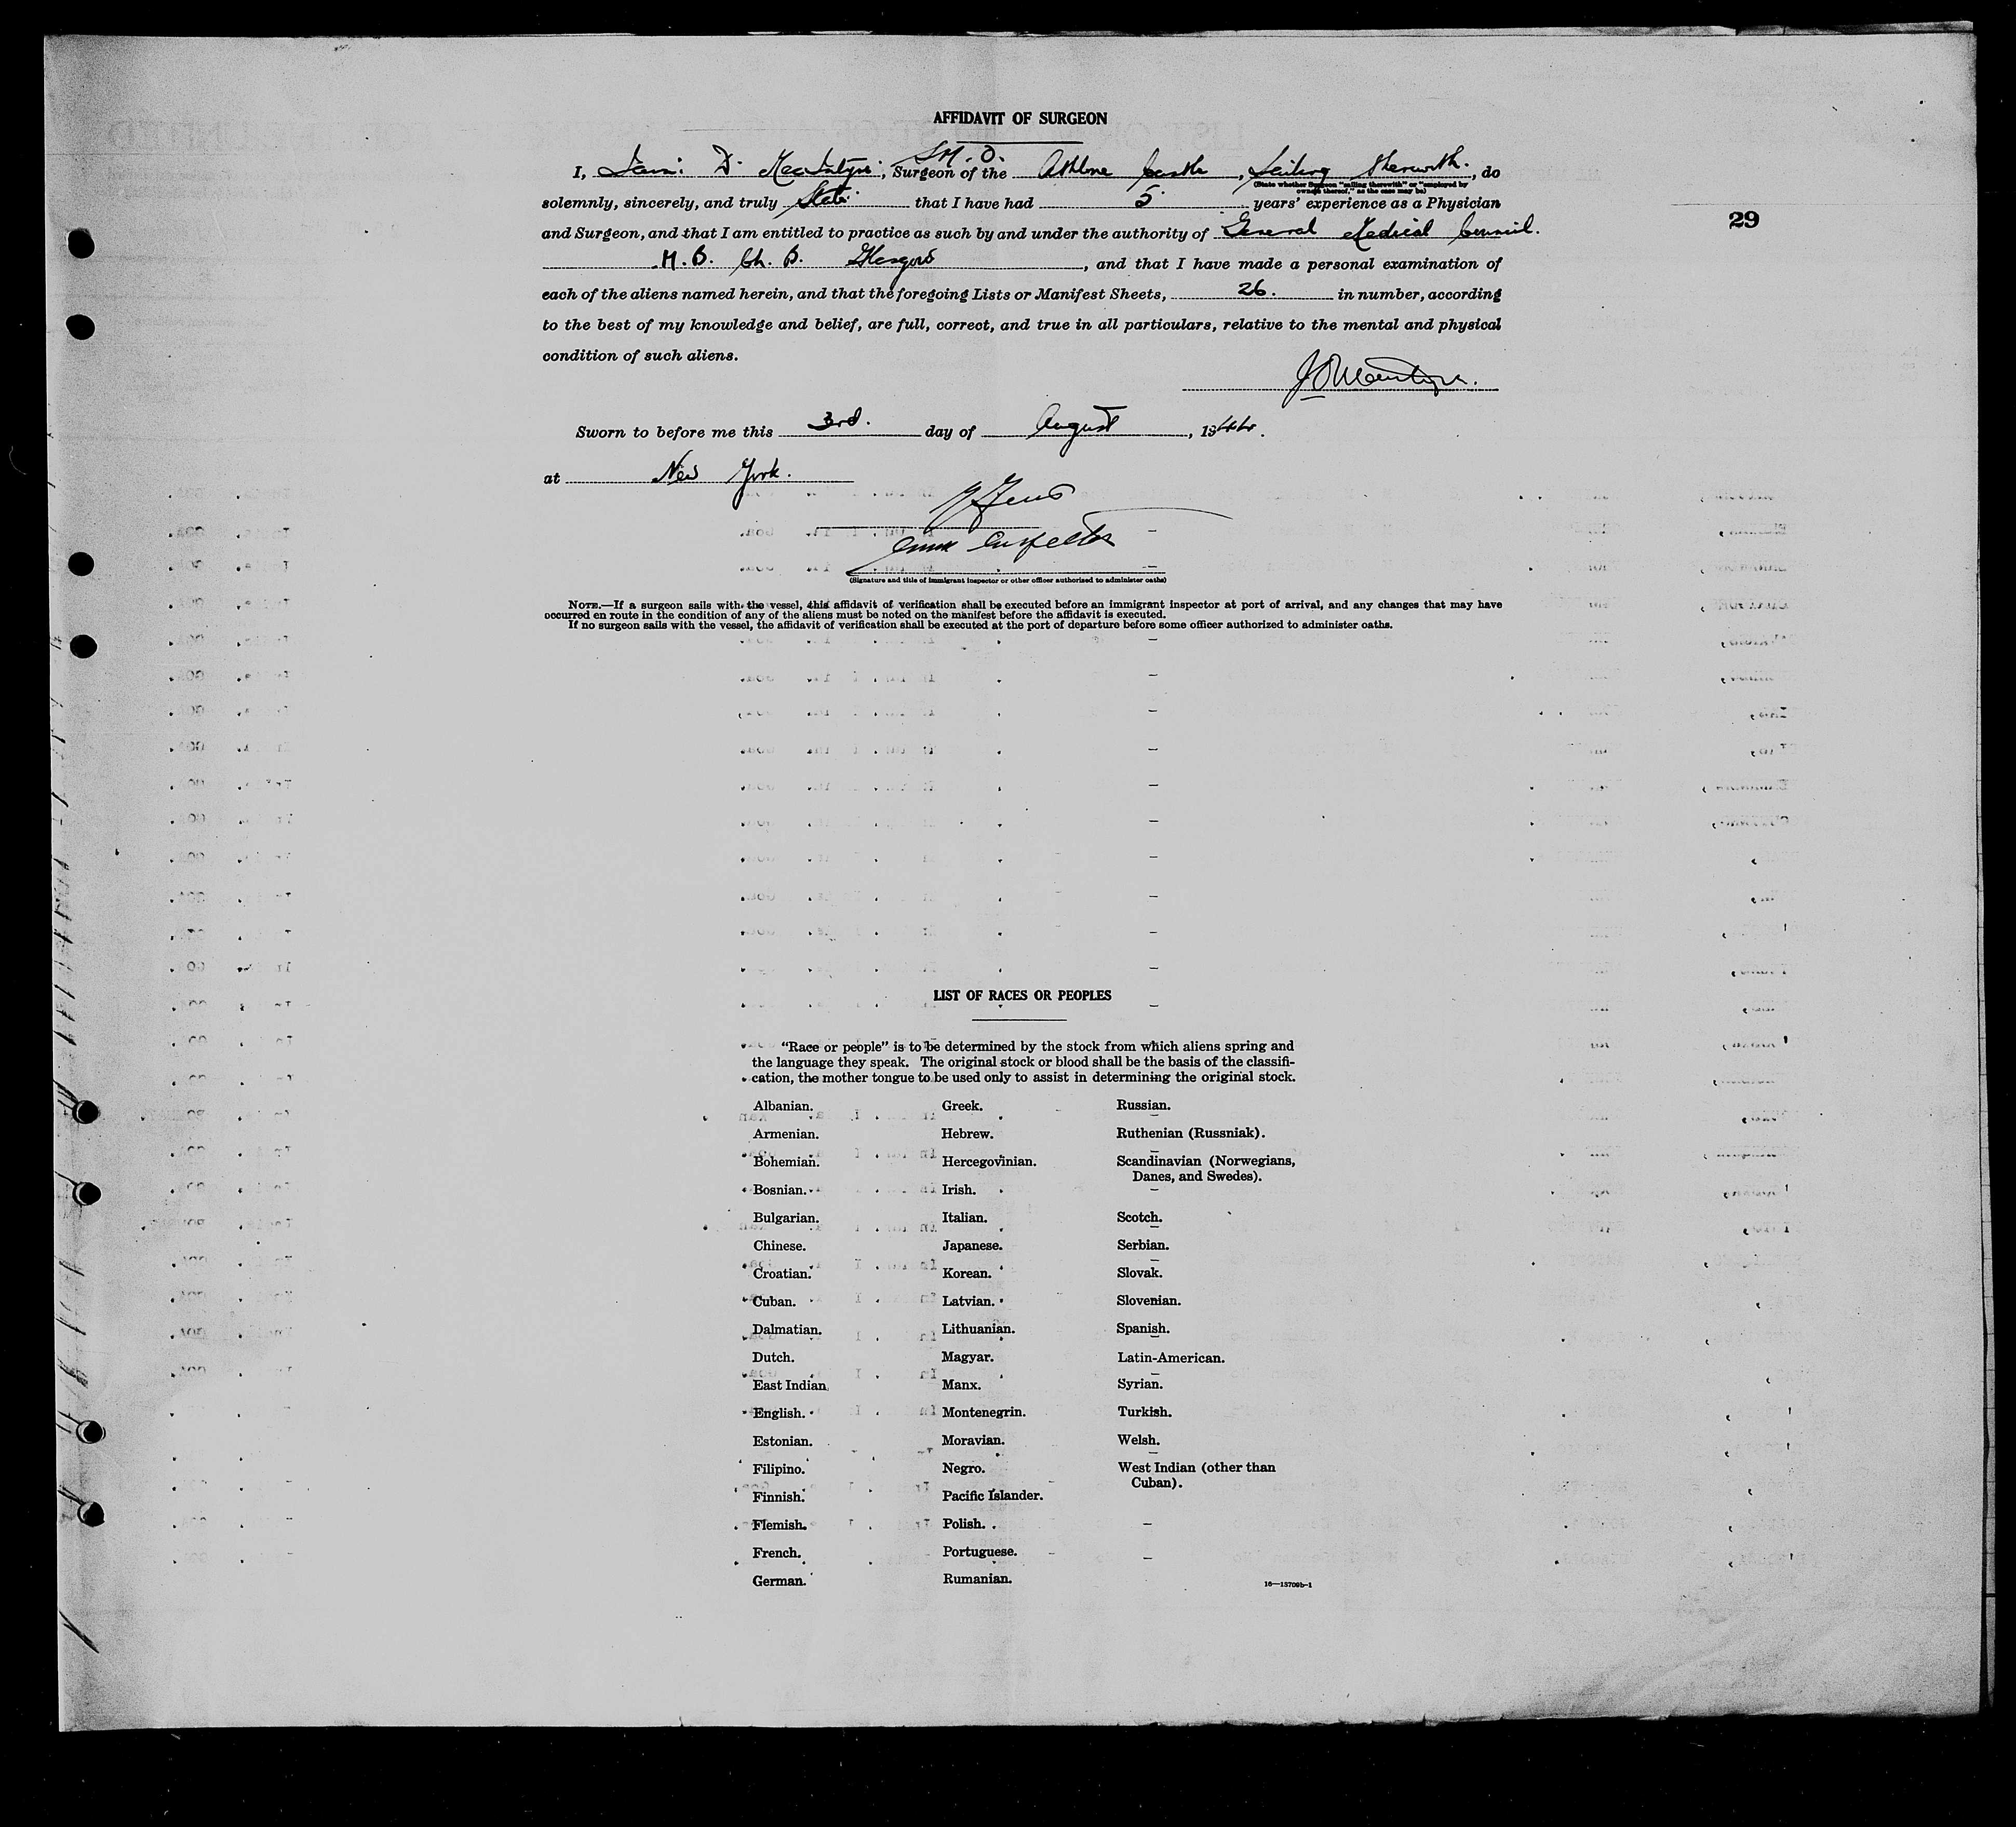 AFFIDAVIT OF SURGEON
I, D. MacIntyre, Surgeon of the Athlone Castle, Sailing therewith., do
(State whether Surgeon "sailing therewith" or "employed by
owners thereof," as the case may be)
solemnly, sincerely, and truly State that I have had 5 years' experience as a Physician
and Surgeon, and that I am entitled to practice as such by and under the authority of General Medical Council.
M.B. Ch. B. Glasgow, and that I have made a personal examination of
29
each of the aliens named herein, and that the foregoing Lists or Manifest Sheets, 26. in number, according
to the best of my knowledge and belief, are full, correct, and true in all particulars, relative to the mental and physical
condition of such aliens.
Sworn to before me this 3rd. day of August, 1944.
at New York.
Inspector
(Signature and title of immigrant inspector or other officer authorized to administer oaths)
NOTE.—If a surgeon sails with the vessel, this affidavit of verification shall be executed before an immigrant inspector at port of arrival, and any changes that may have
occurred en route in the condition of any of the aliens must be noted on the manifest before the affidavit is executed.
If no surgeon sails with the vessel, the affidavit of verification shall be executed at the port of departure before some officer authorized to administer oaths.
LIST OF RACES OR PEOPLES
"Race or people" is to be determined by the stock from which aliens spring and
the language they speak. The original stock or blood shall be the basis of the classifi-
cation, the mother tongue to be used only to assist in determining the original stock.
Albanian.
Armenian.
Bohemian.
Bosnian.
Bulgarian.
Chinese.
Croatian.
Cuban.
Dalmatian.
Dutch.
East Indian
English.
Estonian.
Filipino.
Finnish.
Flemish.
French.
German.
Greek.
Hebrew.
Hercegovinian.
Irish.
Italian.
Japanese.
Korean.
Latvian.
Lithuanian.
Magyar.
Manx.
Montenegrin.
Moravian.
Negro.
Pacific Islander.
Polish.
Portuguese.
Rumanian.
Russian.
Ruthenian (Russniak).
Scandinavian (Norwegians,
Danes, and Swedes).
Scotch.
Serbian.
Slovak.
Slovenian.
Spanish.
Latin-American.
Syrian.
Turkish.
Welsh.
West Indian (other than
Cuban).
16—13709b-1